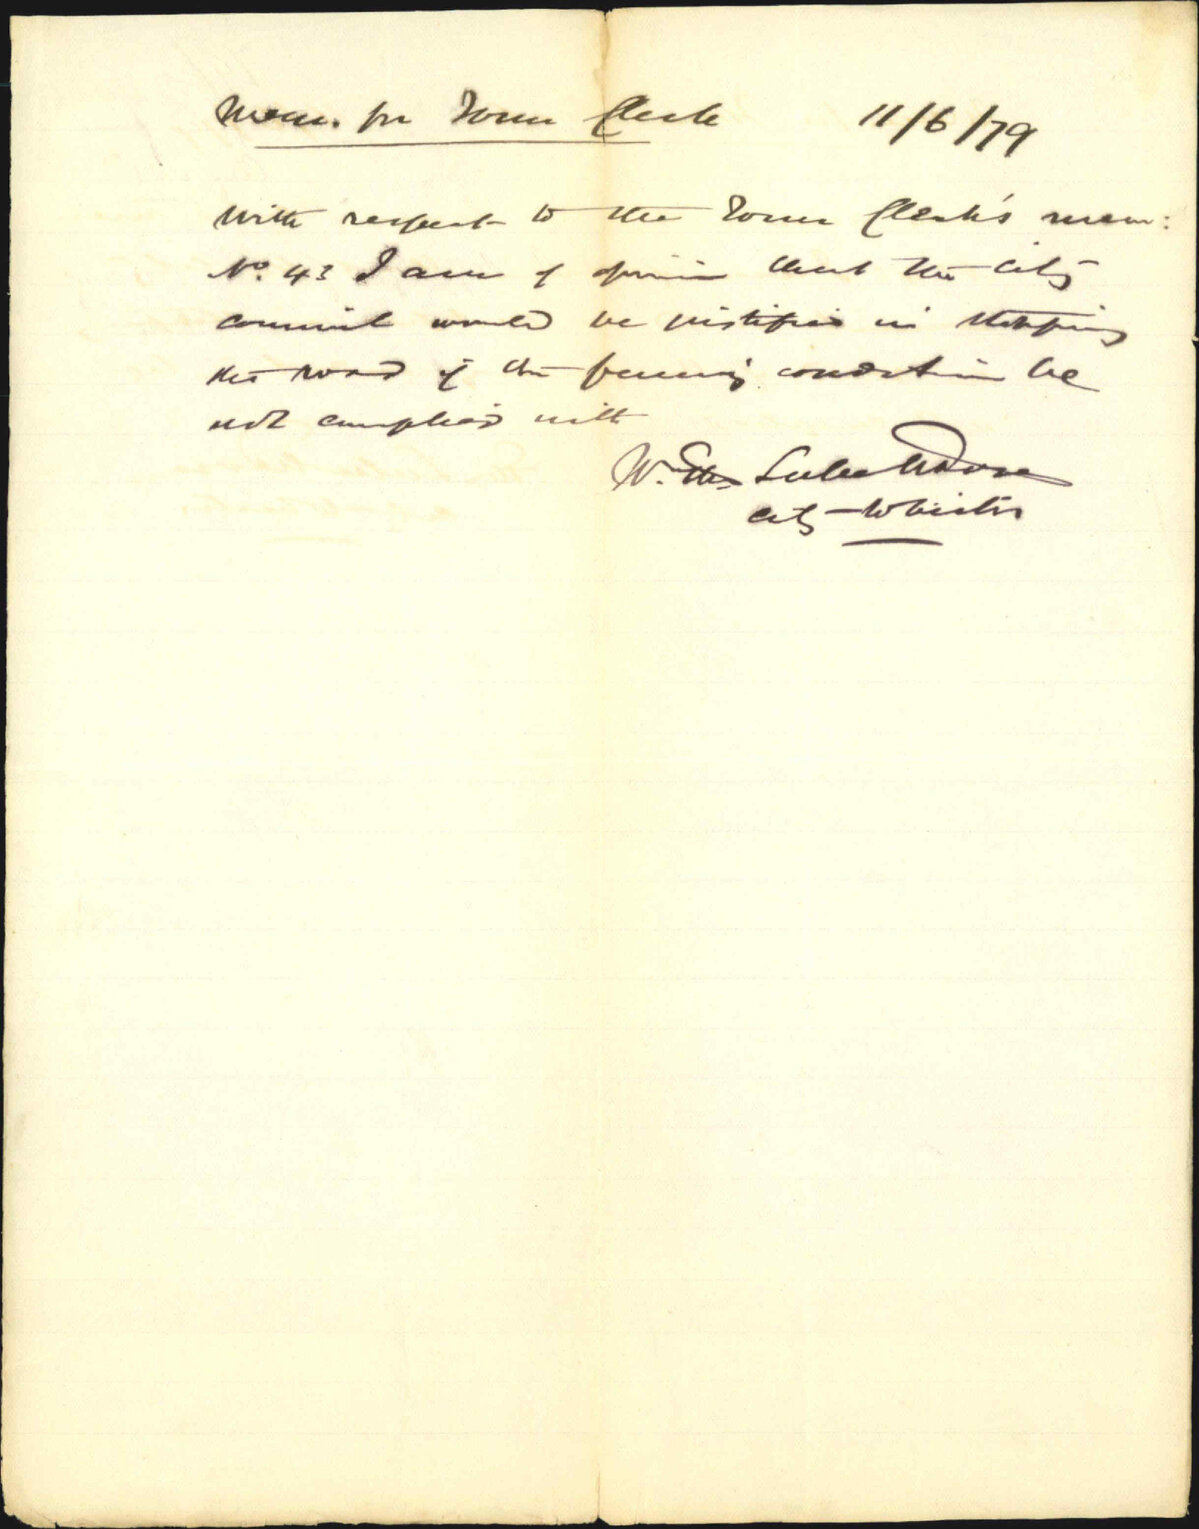 Mem. for Town Clerk 11/6/79
With respect to the Town Clerk's mem:
No. 43 I am of opinion that the City
Council would be justified in stopping
the road if the fencing condition be
not complied with
W.
City